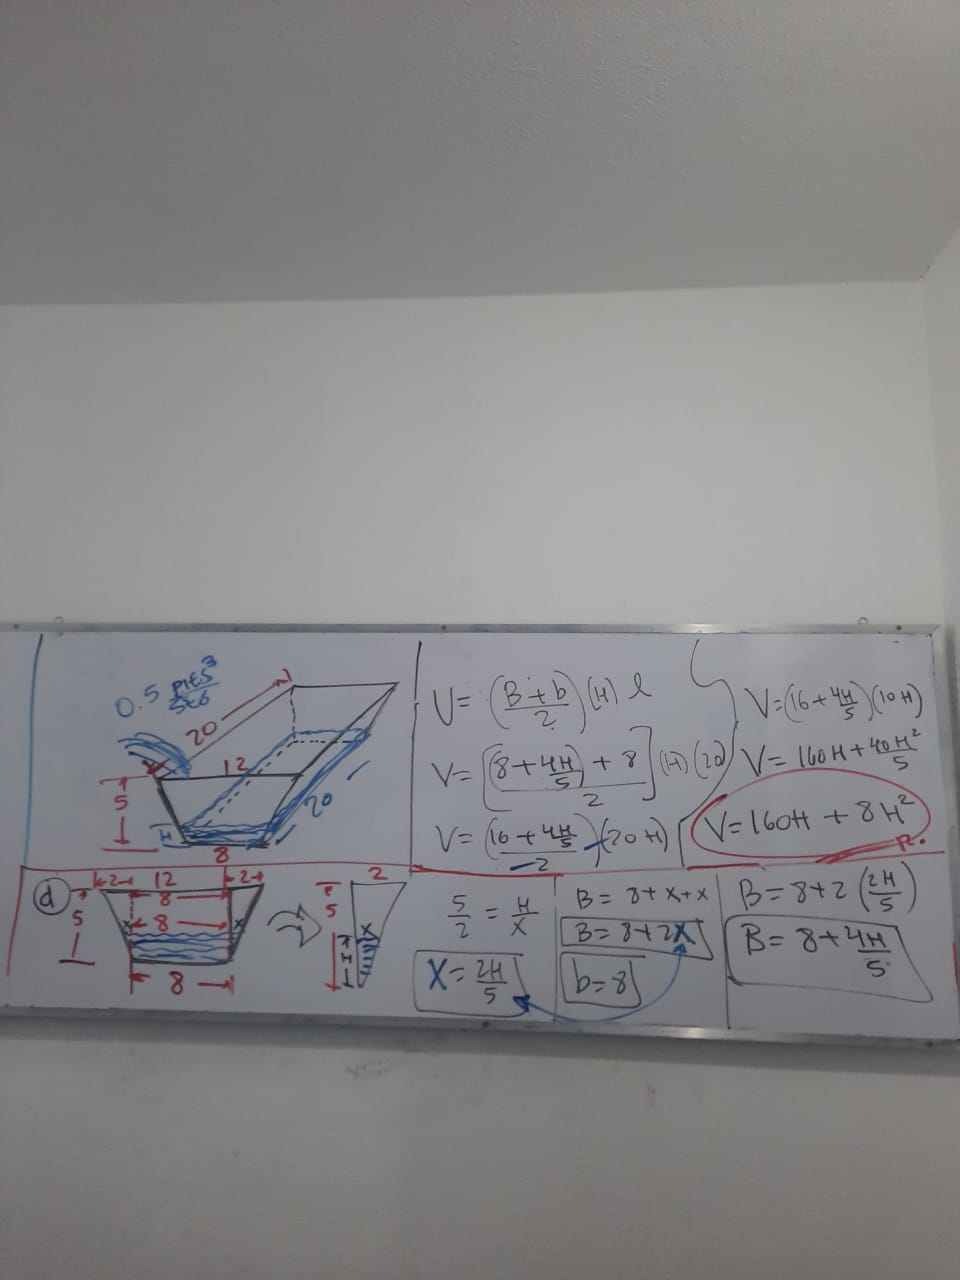 0.5 PIES³/SEG
20
12
5
H
20
8
V= (B+b/2)(H) l
V= [(8+4H/5)+8/2](H)(20)
V= (16+4H/5/2)(20H)
V=(16+4H/5)(10H)
V= 160H+40H²/5
V=160H + 8H²
R.
d
2 12 2
8
5
X 8 X
8
2
5
X
H
5/2 = H/X
X= 2H/5
B= 8+X+X
B= 8+2X
b=8
B= 8+2(2H/5)
B= 8+4H/5